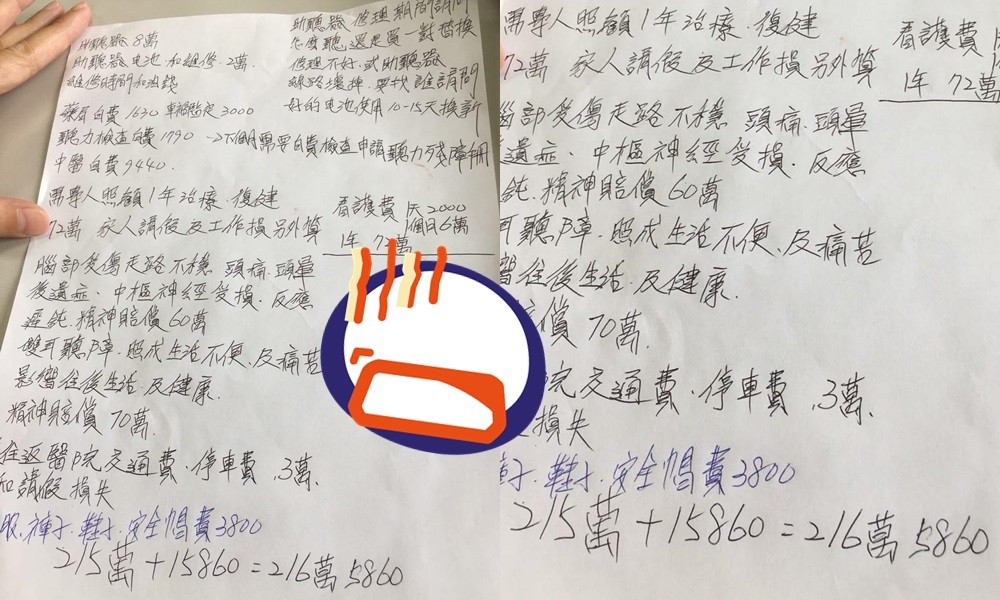 助聽器 8萬
助聽器電池和維修.2萬
維修時間和油錢
助聽器 修理期間請問
怎麼聽 還是買一對替換
修理不好.或助聽器
線路壞掉.要找誰請問
好的電池使用10-15天換新
藥膏自費1630 車禍鑑定3000
聽力檢查自費1790 →2個月需要自費檢查申請聽力殘障冊
中醫自費9440.
需專人照顧1年治療.復健
72萬 家人請假及工作損另外算
看護費1天2000
1個月6萬
1年 72萬
腦部受傷走路不穩 頭痛.頭暈
後遺症、中樞神經受損.反應
遲鈍.精神賠償60萬
雙耳聽障.照成生活不便、及痛苦
影響往後生活.及健康.
精神賠償 70萬.
往返醫院交通費.停車費.3萬.
和請假損失
服.褲子.鞋子.安全帽費3800
215萬+15860=216萬5860
需專人照顧1年治療.復健
72萬 家人請假及工作損另外算
看護費
1年 72萬
腦部受傷走路不穩 頭痛.頭暈
遺症、中樞神經受損.反應
鈍.精神賠償60萬
耳聽障.照成生活不便、及痛苦
響往後生活.及健康.
償 70萬.
院交通費.停車費.3萬.
損失
子.鞋子.安全帽費3800
215萬+15860=216萬5860